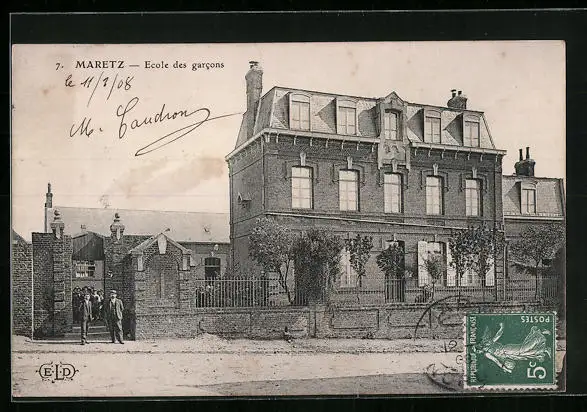 7. MARETZ — Ecole des garçons
le 11/2/08
M. Caudron
ELD
POSTES
5c
REPUBLIQUE FRANÇAISE